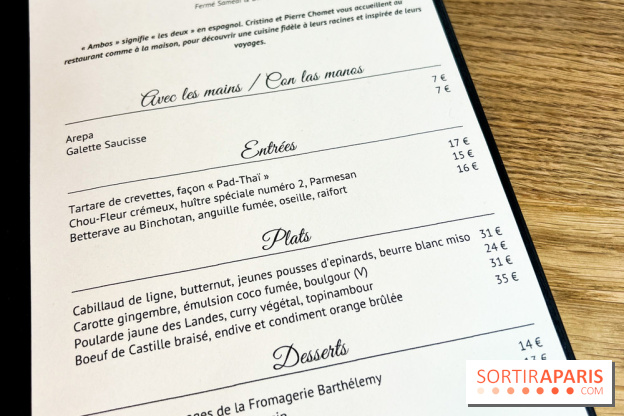 Fermé Samedi &
« Ambos » signifie « les deux » en espagnol. Cristina et Pierre Chomet vous accueillent au
restaurant comme à la maison, pour découvrir une cuisine fidèle à leurs racines et inspirée de leurs
voyages.
Avec les mains / Con las manos
Arepa 7 €
Galette Saucisse 7 €
Entrées
Tartare de crevettes, façon « Pad-Thaï » 17 €
Chou-Fleur crémeux, huître spéciale numéro 2, Parmesan 15 €
Betterave au Binchotan, anguille fumée, oseille, raifort 16 €
Plats
Cabillaud de ligne, butternut, jeunes pousses d'epinards, beurre blanc miso 31 €
Carotte gingembre, émulsion coco fumée, boulgour (V) 24 €
Poularde jaune des Landes, curry végétal, topinambour 31 €
Boeuf de Castille braisé, endive et condiment orange brûlée 35 €
Desserts
de la Fromagerie Barthélemy 14 €
SORTIRAPARIS
.COM